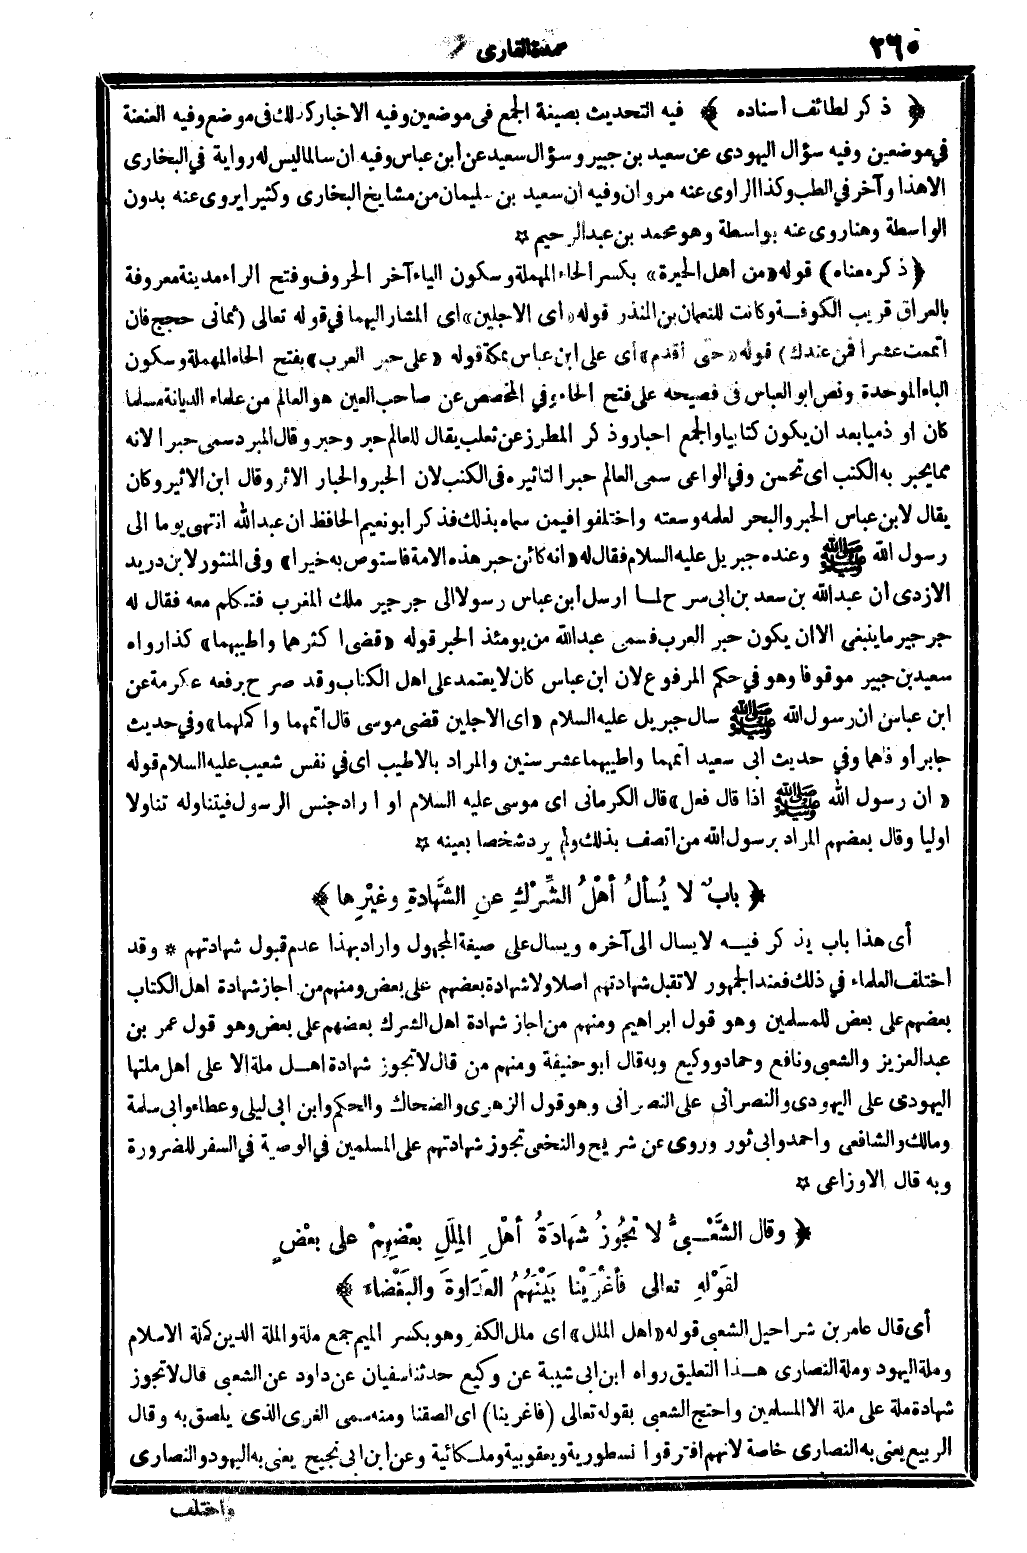 ٢٦٠
عمدة القارى
﴿ ذكر لطائف اسناده ﴾ فيه التحديث بصيغة الجمع فى موضعين وفيه الاخبار كذلك فى موضع وفيه العنعنة
فى موضعين وفيه سؤال اليهودى عن سعيد بن جبير وسؤال سعيد عن ابن عباس وفيه ان سالما ليس له رواية في البخارى
الا هذا وآخر في الطب وكذا الراوى عنه مروان وفيه ان سعيد بن سليمان من مشايخ البخارى وكثيرا يروى عنه بدون
الواسطة وهنا روى عنه بواسطة وهو محمد بن عبد الرحيم ✡
﴿ ذكر معناه ﴾ قوله «من اهل الحيرة» بكسر الحاء المهملة وسكون الياء آخر الحروف وفتح الراء مدينة معروفة
بالعراق قريب الكوفة وكانت للنعمان بن المنذر قوله «اى الاجلين» اى المشار اليهما في قوله تعالى (ثمانى حجج فان
اتممت عشرا فمن عندك) قوله «حتى أقدم» أى على ابن عباس بمكة قوله «على حبر العرب» بفتح الحاء المهملة وسكون
الباء الموحدة ونص ابو العباس فى فصيحه على فتح الحاء وفي المخصص عن صاحب العين هو العالم من علماء الديانة مسلما
كان او ذميا بعد ان يكون كتابيا والجمع احبار وذكر المطرز عن ثعلب يقال للعالم حبر وحبر وقال المبرد سمى حبرا لانه
مما يحبر به الكتب اى تحسن وفي الواعى سمى العالم حبرا لتاثيره فى الكتب لان الحبر والحبار الاثر وقال ابن الاثير وكان
يقال لابن عباس الحبر والبحر لعلمه وسعته واختلفوا فيمن سماه بذلك فذكر ابو نعيم الحافظ ان عبد الله انتهى يوما الى
رسول الله ﷺ وعنده جبريل عليه السلام فقال له «انه كائن حبر هذه الامة فاستوص به خيرا» وفى المنثور لابن دريد
الازدى أن عبد الله بن سعد بن ابى سرح لما ارسل ابن عباس رسولا الى جرجير ملك المغرب فتكلم معه فقال له
جرجير ما ينبغى الا ان يكون حبر العرب فسمى عبد الله من يومئذ الحبر قوله «قضى اكثرهما واطيبهما» كذا رواه
سعيد بن جبير موقوفا وهو في حكم المرفوع لان ابن عباس كان لا يعتمد على اهل الكتاب وقد صرح برفعه عكرمة عن
ابن عباس ان رسول الله ﷺ سال جبريل عليه السلام «اى الاجلين قضى موسى قال اتمهما واكملهما» وفي حديث
جابر أوفاهما وفي حديث ابى سعيد اتمهما واطيبهما عشر سنين والمراد بالاطيب اى في نفس شعيب عليه السلام قوله
«ان رسول الله ﷺ اذا قال فعل» قال الكرمانى اى موسى عليه السلام او اراد جنس الرسول فيتناوله تناولا
اوليا وقال بعضهم المراد برسول الله من اتصف بذلك ولم يرد شخصا بعينه ✡
﴿ بابٌ لا يُسألُ أهْلُ الشِّرْكِ عنِ الشَّهادةِ وغيْرِها ﴾
أى هذا باب يذكر فيه لا يسال الى آخره ويسال على صيغة المجهول واراد بهذا عدم قبول شهادتهم * وقد
اختلف العلماء في ذلك فعند الجمهور لا تقبل شهادتهم اصلا ولا شهادة بعضهم على بعض ومنهم من اجاز شهادة اهل الكتاب
بعضهم على بعض للمسلمين وهو قول ابراهيم ومنهم من اجاز شهادة اهل الشرك بعضهم على بعض وهو قول عمر بن
عبد العزيز والشعبى ونافع وحماد ووكيع وبه قال ابو حنيفة ومنهم من قال لا تجوز شهادة اهل ملة الا على اهل ملتها
اليهودى على اليهودى والنصرانى على النصرانى وهو قول الزهرى والضحاك والحكم وابن ابى ليلى وعطاء وابى سلمة
ومالك والشافعى واحمد وابى ثور وروى عن شريح والنخعى تجوز شهادتهم على المسلمين في الوصية في السفر للضرورة
وبه قال الاوزاعى ✡
﴿ وقال الشَّعْبىُّ لا تجُوزُ شَهَادَةُ أهْلِ المِلَلِ بعْضِهِمْ على بعْضٍ
لقَوْلهِ تعالى فأغْرَيْنا بَيْنَهُمُ العَدَاوةَ والبَغْضاءَ ﴾
أى قال عامر بن شراحيل الشعبى قوله «اهل الملل» اى ملل الكفر وهو بكسر الميم جمع ملة والملة الدين كملة الاسلام
وملة اليهود وملة النصارى هذا التعليق رواه ابن ابى شيبة عن وكيع حدثنا سفيان عن داود عن الشعبى قال لا تجوز
شهادة ملة على ملة الا المسلمين واحتج الشعبى بقوله تعالى (فاغرينا) اى الصقنا ومنه سمى الغرى الذى يلصق به وقال
الربيع يعنى به النصارى خاصة لانهم افترقوا نسطورية ويعقوبية وملكائية وعن ابن ابى نجيح يعنى به اليهود والنصارى
واختلف